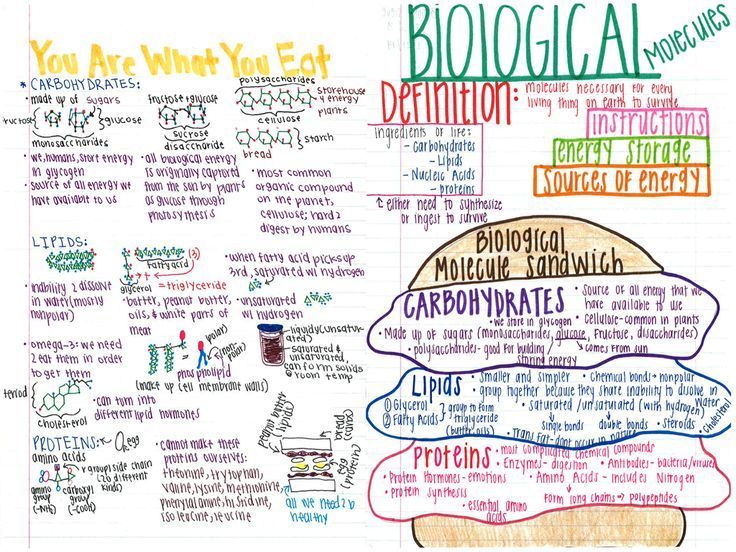 You Are What You Eat
* CARBOHYDRATES:
• made up of sugars
fructose
glucose
monosaccharides
fructose + glucose
sucrose
disaccharide
polysaccharides
storehouse
of energy
plants
cellulose
starch
bread
• we, humans, store energy
in glycogen
• source of all energy we
have available to us
• all biological energy
is originally captured
from the sun by plants
as glucose through
photosynthesis
• most common
organic compound
on the planet,
cellulose; hard 2
digest by humans
LIPIDS:
fatty acid
(3)
glycerol = triglyceride
• when fatty acid picks up
3rd, saturated w/ hydrogen
• unsaturated
w/ hydrogen
• inability 2 dissolve
in water (mostly
nonpolar)
• butter, peanut butter,
oils, & white parts of
meat
• omega-3: we need
2 eat them in order
to get them
polar)
(nonpolar)
phospholipid
(make up cell membrane walls)
liquidy (unsatur
ated)
• saturated &
unsaturated,
can form solids
@ room temp
steriod
cholesterol
• can turn into
different lipid hormones
PROTEINS:
egg
amino acids
r group: side chain
(20 different
kinds)
amino
group
(-NH2)
carboxyl
group
(-COOH)
• cannot make these
proteins ourselves:
threonine, tryptophan,
valine, lysine, methionine,
phenylalanine, histidine,
isoleucine, leucine
peanut butter
(lipids)
bread
(carbs)
egg
(protein)
all we need 2 b
healthy
BIOLOGICAL
Molecules
Definition:
molecules necessary for every
living thing on earth to survive
ingredients of life:
- Carbohydrates
- Lipids
- Nucleic Acids
- proteins
↑ either need to synthesize
or ingest to survive
instructions
energy storage
Sources of energy
Biological
Molecule Sandwich
CARBOHYDRATES
• Source of all energy that we
have available to use
• we store in glycogen
• cellulose-common in plants
• Made up of sugars (monosaccharides, glucose, fructose, disaccharides)
• polysaccharides- good for building /
storing energy
comes from sun
Lipids
• Smaller and simpler
• Chemical bonds → nonpolar
• group together because they share inability to dissolve in
water
① Glycerol
② Fatty Acids
group to form
triglyceride
(butter, oils)
• saturated / unsaturated (with hydrogen)
single bonds
double bonds
• steroids →
cholesterol
• Trans fat- dont occur in nature
Proteins
• most complicated chemical compounds
• Enzymes- digestion
• Antibodies- bacteria/viruses
• Protein Hormones- emotions
• Amino Acids - includes Nitrogen
• protein synthesis
form long chains → polypeptides
essential amino
acids